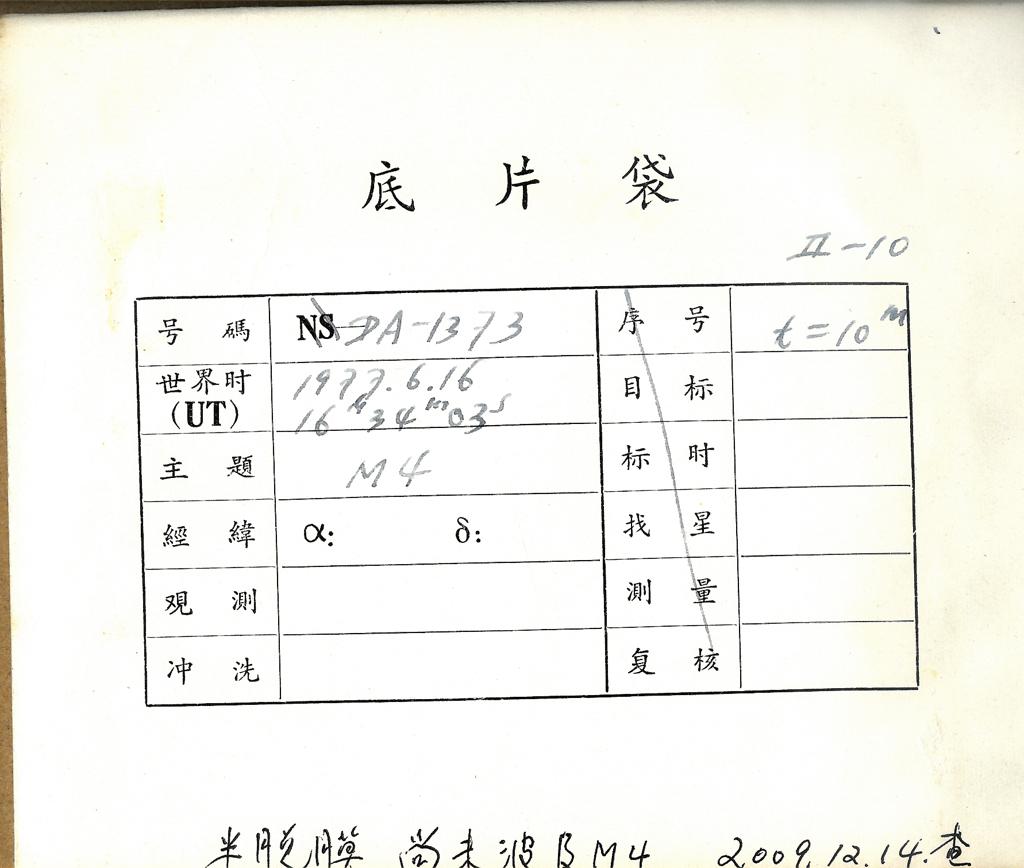 底 片 袋
II-10
号 碼 NS- DA-1373 序 号 t=10ᵐ
世界时 (UT) 1977.6.16 目 标
16ʰ34ᵐ03ˢ
主 題 M4 标 时
經 緯 α: δ: 找 星
观 測 測 量
冲 洗 复 核
半脱膜 尚未波及M4 2009.12.14.查